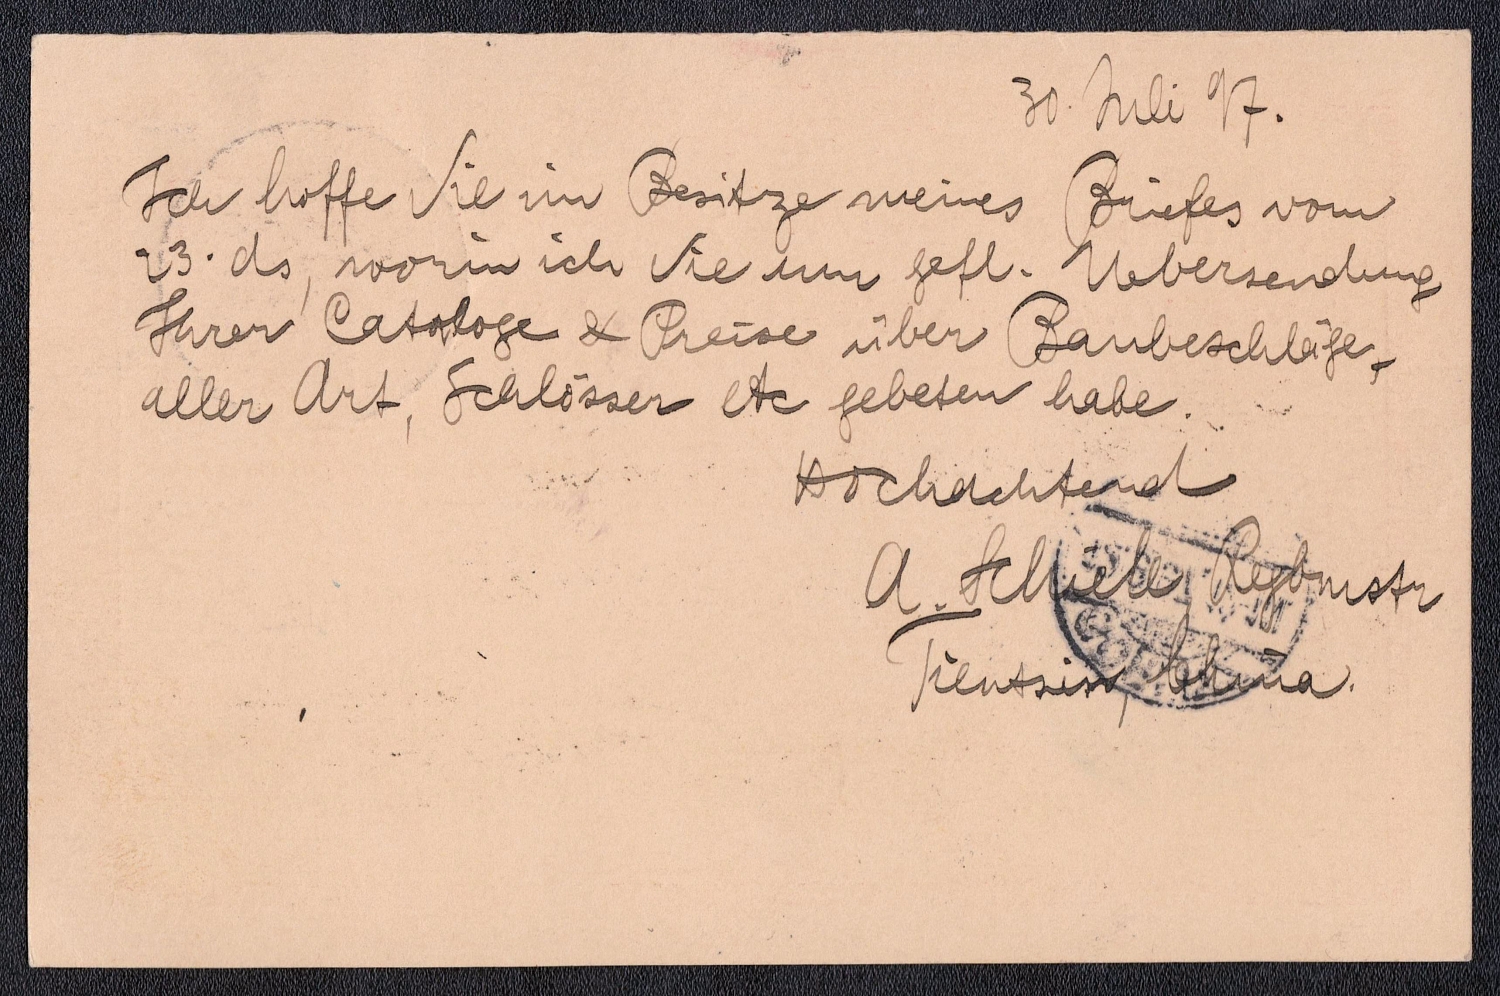 30. Juli 97.
Ich hoffe Sie im Besitze meines Briefes vom
23. ds, worin ich Sie um gefl. Uebersendung
Ihrer Cataloge & Preise über Baubeschläge,
aller Art, Schlösser etc gebeten habe.
Hochachtend
A. Schiele Regbmstr
Tientsin, China.